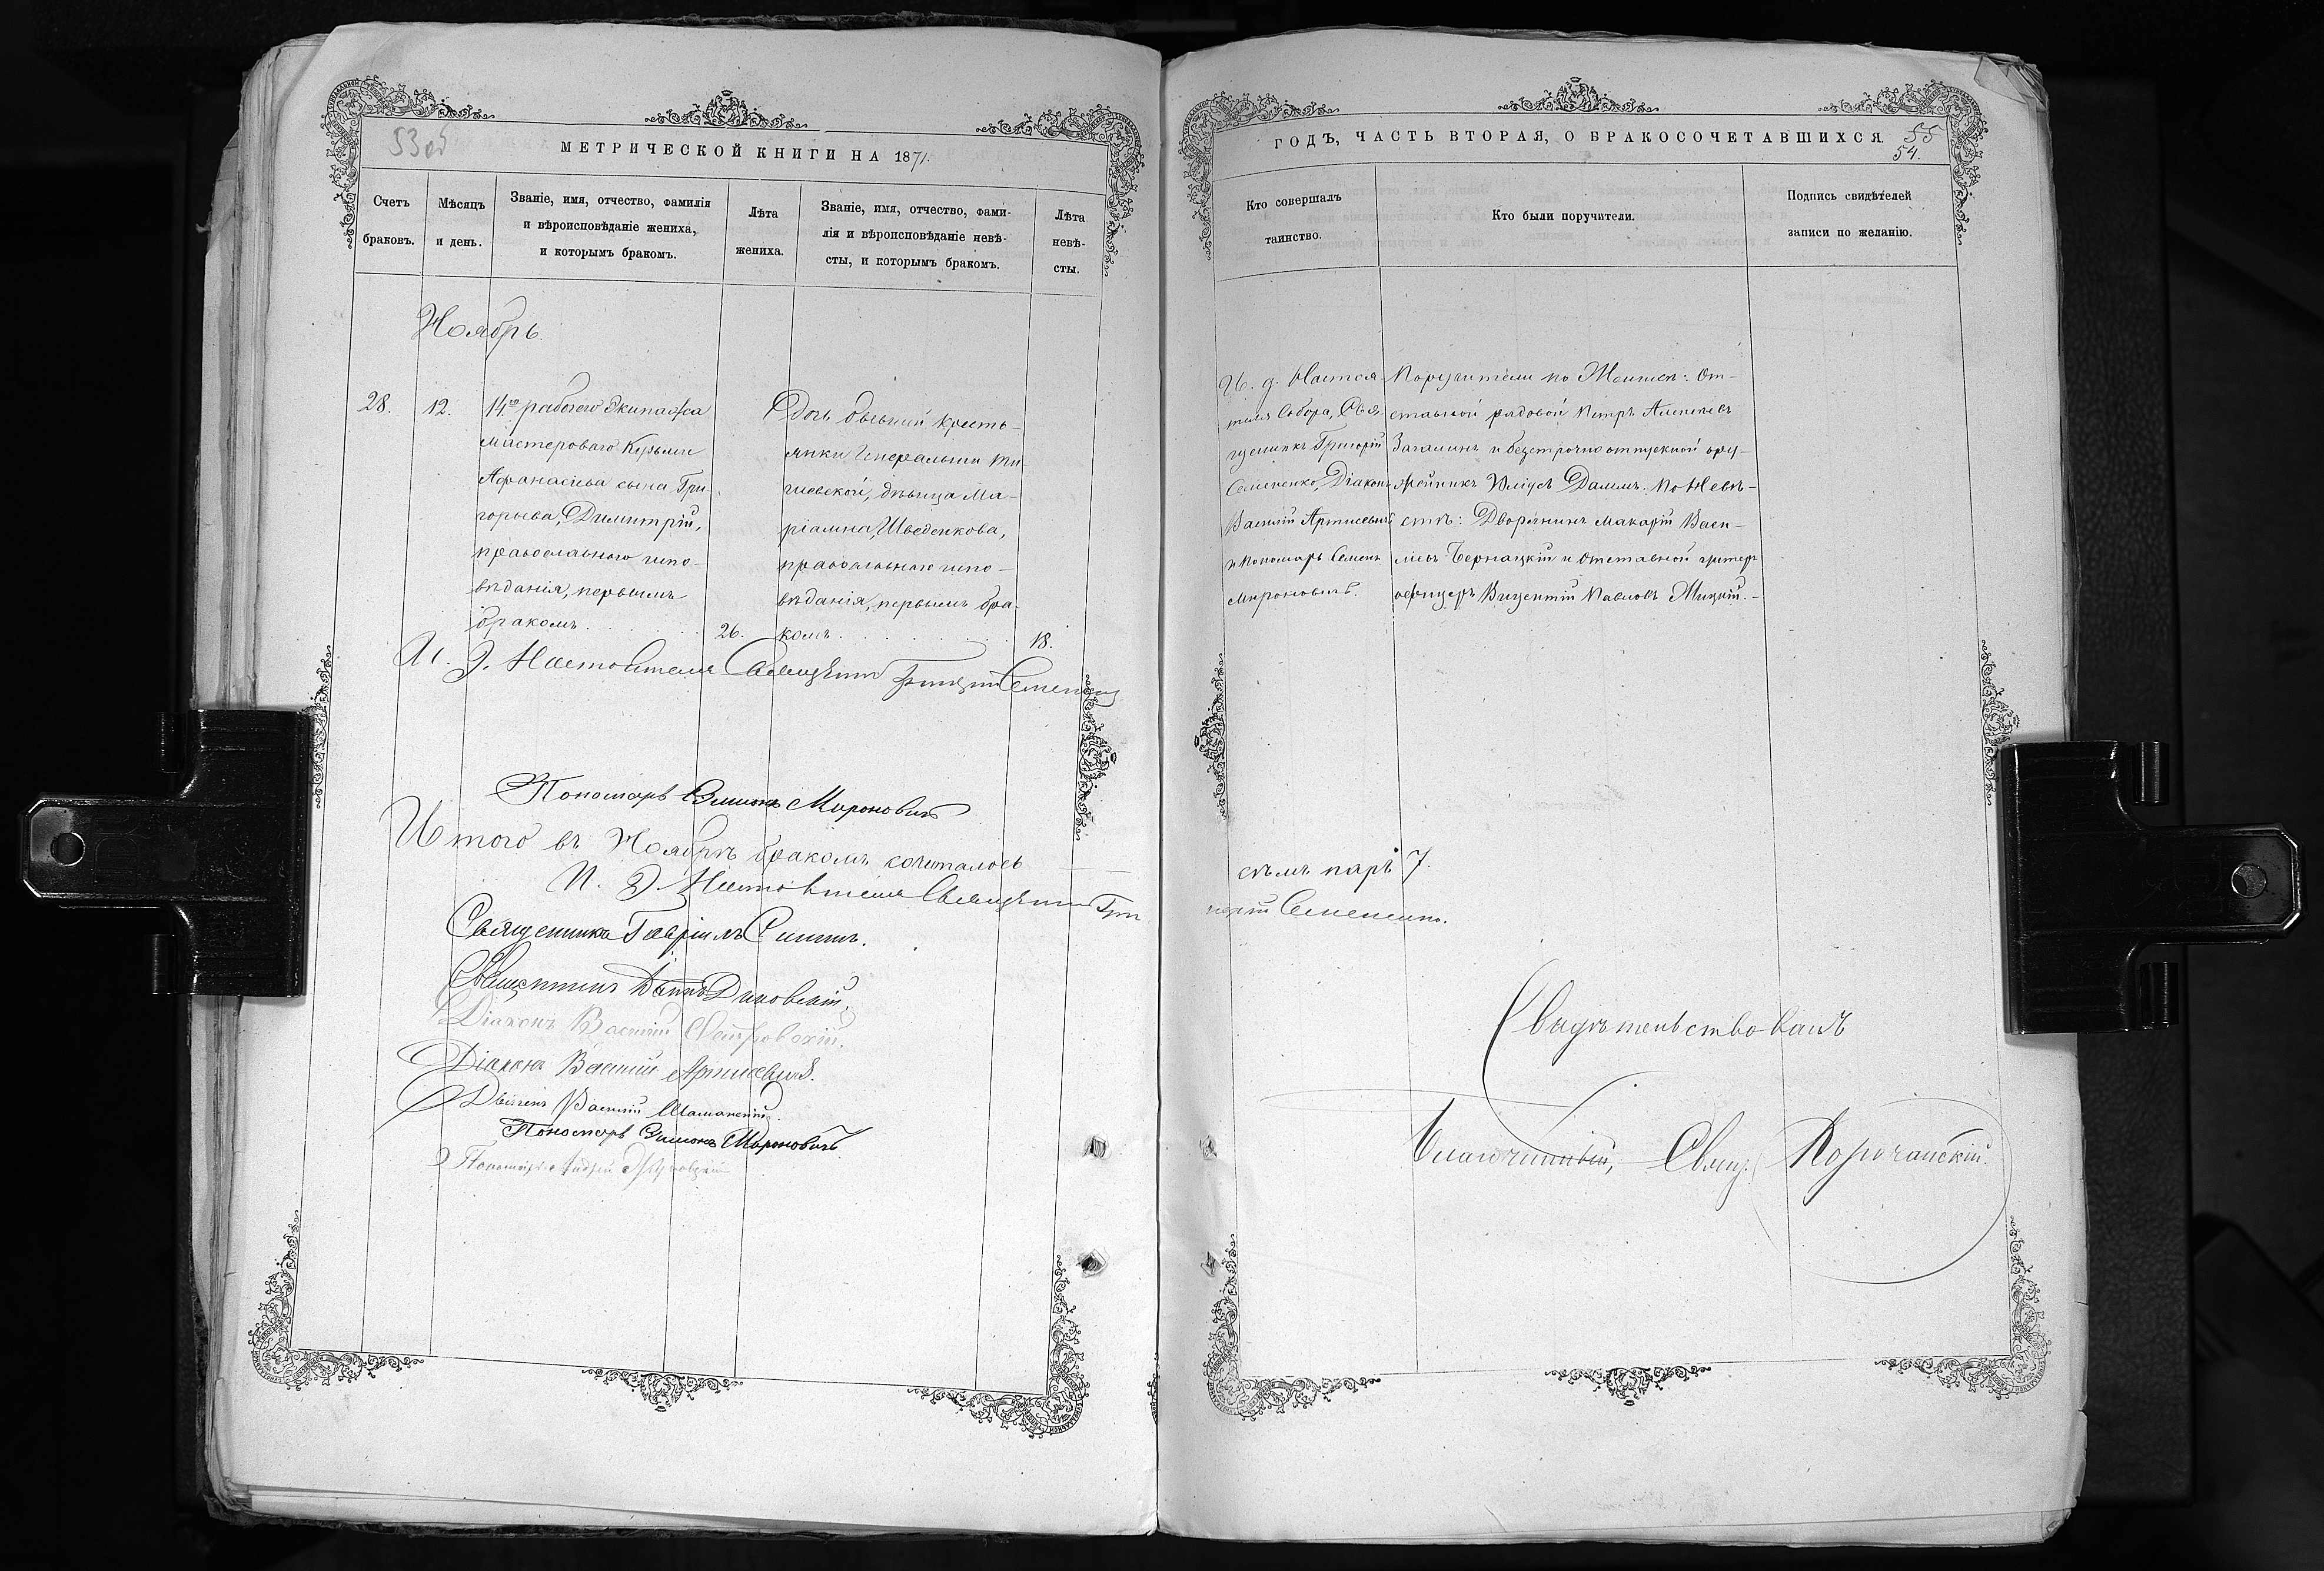 53 об
МЕТРИЧЕСКОЙ КНИГИ НА 1871.
Счетъ браковъ.
Мѣсяцъ и день.
Званіе, имя, отчество, фамилія
и вѣроисповѣданіе жениха,
и которымъ бракомъ.
Лѣта жениха.
Званіе, имя, отчество, фами-
лія и вѣроисповѣданіе невѣ-
сты, и которымъ бракомъ.
Лѣта невѣ-
сты.
Ноябрь.
28.
12.
14го рабочаго Экипажа
мастероваго Кузьмы
Афанасіева сына Гри-
горьева, Димитрій,
православнаго испо-
вѣданія, первымъ
бракомъ
26.
Дочь бывшей кресть-
янки Генеральши
дѣвица Ма-
ріамна Шведенкова,
православнаго испо-
вѣданія, первымъ бра-
комъ
18.
И. Д. Настоятеля Священникъ Григорій Семененко
Пономарь Симеонъ Мироновичъ
Итого въ Ноябрѣ бракомъ сочеталось
И. Д. Настоятеля Священникъ Гри
Священникъ Гавріилъ
Священникъ
Діаконъ Василій
Діаконъ Василій Артисевичъ.
Василій
Пономарь Симеонъ Мироновичъ
Пономарь Андрей
ГОДЪ, ЧАСТЬ ВТОРАЯ, О БРАКОСОЧЕТАВШИХСЯ.
55
54.
Кто совершалъ
таинство.
Кто были поручители.
Подпись свидѣтелей
записи по желанію.
И. д. Настоя-
теля Собора, Свя-
щенникъ Григорій
Семененко, Діаконъ
Василій Артисевичъ
и Пономарь Семенъ
Мироновичъ.
Поручители по Женихѣ: От-
ставной рядовой Петръ Алексѣевъ
и безсрочноотпускной ору-
жейникъ По Невѣ-
стѣ: Дворянинъ Макарій Васи-
льевъ Бернацкій и Отставной унтеръ
офицеръ Викентій Павловъ
семь паръ 7.
горій Семененко.
Свидѣтельствовалъ
Благочинный, Свящ. Корчанскій.